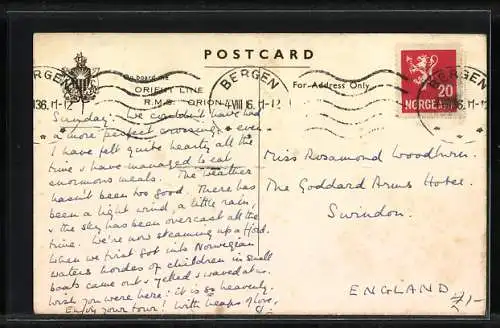 POSTCARD
On board the
ORIENT LINE
R.M.S. ORION
For Address Only
BERGEN
4 VIII 36. 11-12
BERGEN
36. 11-12
20
NORGE
Sunday. We couldn't have had
a more perfect crossing - even
I have felt quite hearty all the
time & have managed to eat
enormous meals. The weather
hasn't been too good. There has
been a light wind, a little rain,
& the sky has been overcast all the
time. We're now steaming up a fjord.
When we first got into Norwegian
waters hordes of children in small
boats came out & yelled & waved at us.
Wish you were here: it is so heavenly.
Enjoy your tour! With heaps of love.
Miss Rosamond Woodburn.
The Goddard Arms Hotel.
Swindon.
ENGLAND
£1-